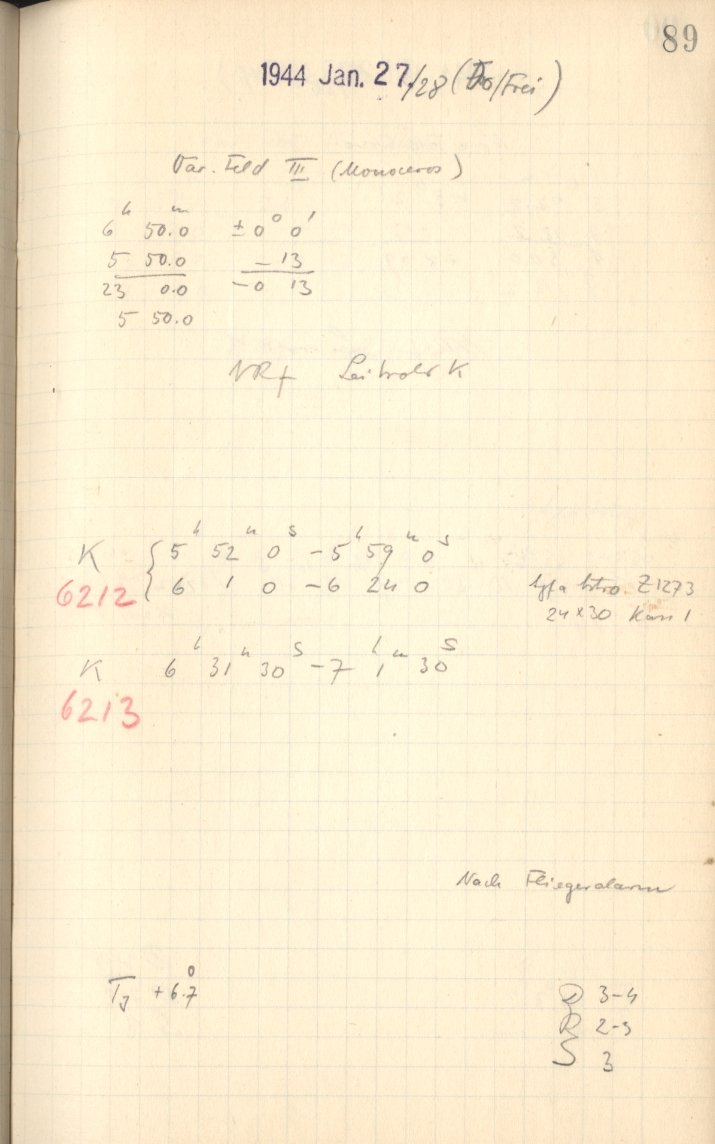 89
1944 Jan. 27./28 (Do/Frei)
Var. Feld III (Monoceros)
6h 50.0m ±0° 0'
5 50.0 – 13
23 0.0 – 0 13
5 50.0
K { 5h 52m 0s – 5h 59m 0s
6212 6 1 0 – 6 24 0
Agfa Astro Z1273
24×30 Kass 1
K 6h 31m 30s – 7h 1m 30s
6213
Nach Fliegeralarm
TJ +6.7°
D 3-4
R 2-3
S 3